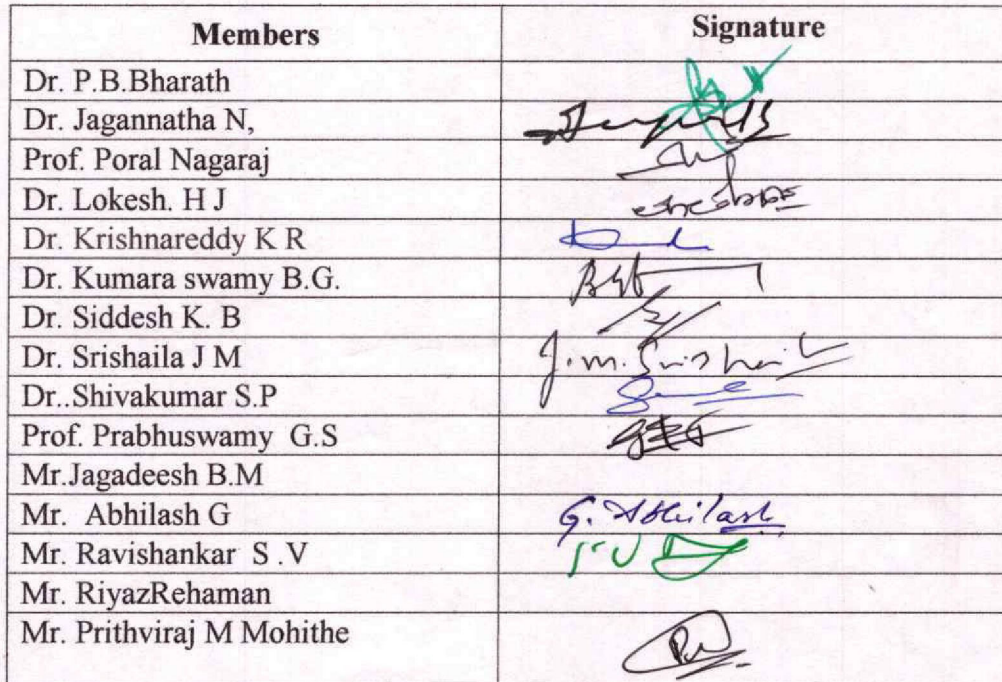 Members Signature
Dr. P.B.Bharath
Dr. Jagannatha N,
Prof. Poral Nagaraj
Dr. Lokesh. H J
Dr. Krishnareddy K R
Dr. Kumara swamy B.G.
Dr. Siddesh K. B
Dr. Srishaila J M J.m.Srishail
Dr..Shivakumar S.P
Prof. Prabhuswamy G.S
Mr.Jagadeesh B.M
Mr. Abhilash G G. Abhilash
Mr. Ravishankar S .V
Mr. RiyazRehaman
Mr. Prithviraj M Mohithe